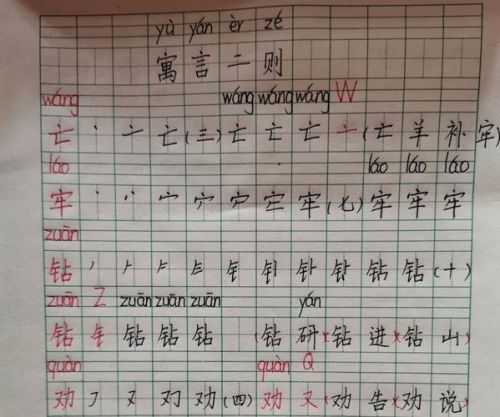 yù yán èr zé
寓言二则
wáng wáng wáng wáng W
亡丶亠亡(三)亡亡亡亠(亡羊补牢)
láo láo láo láo
牢丶丷宀牢(七)牢牢牢
zuān
钻丿𠂉钅钻钻(十)
zuān Z zuān zuān zuān yán
钻钅钻钻钻(钻研)(钻进)(钻山)
quàn quàn Q
劝フ又劝劝(四)劝又(劝告)(劝说)